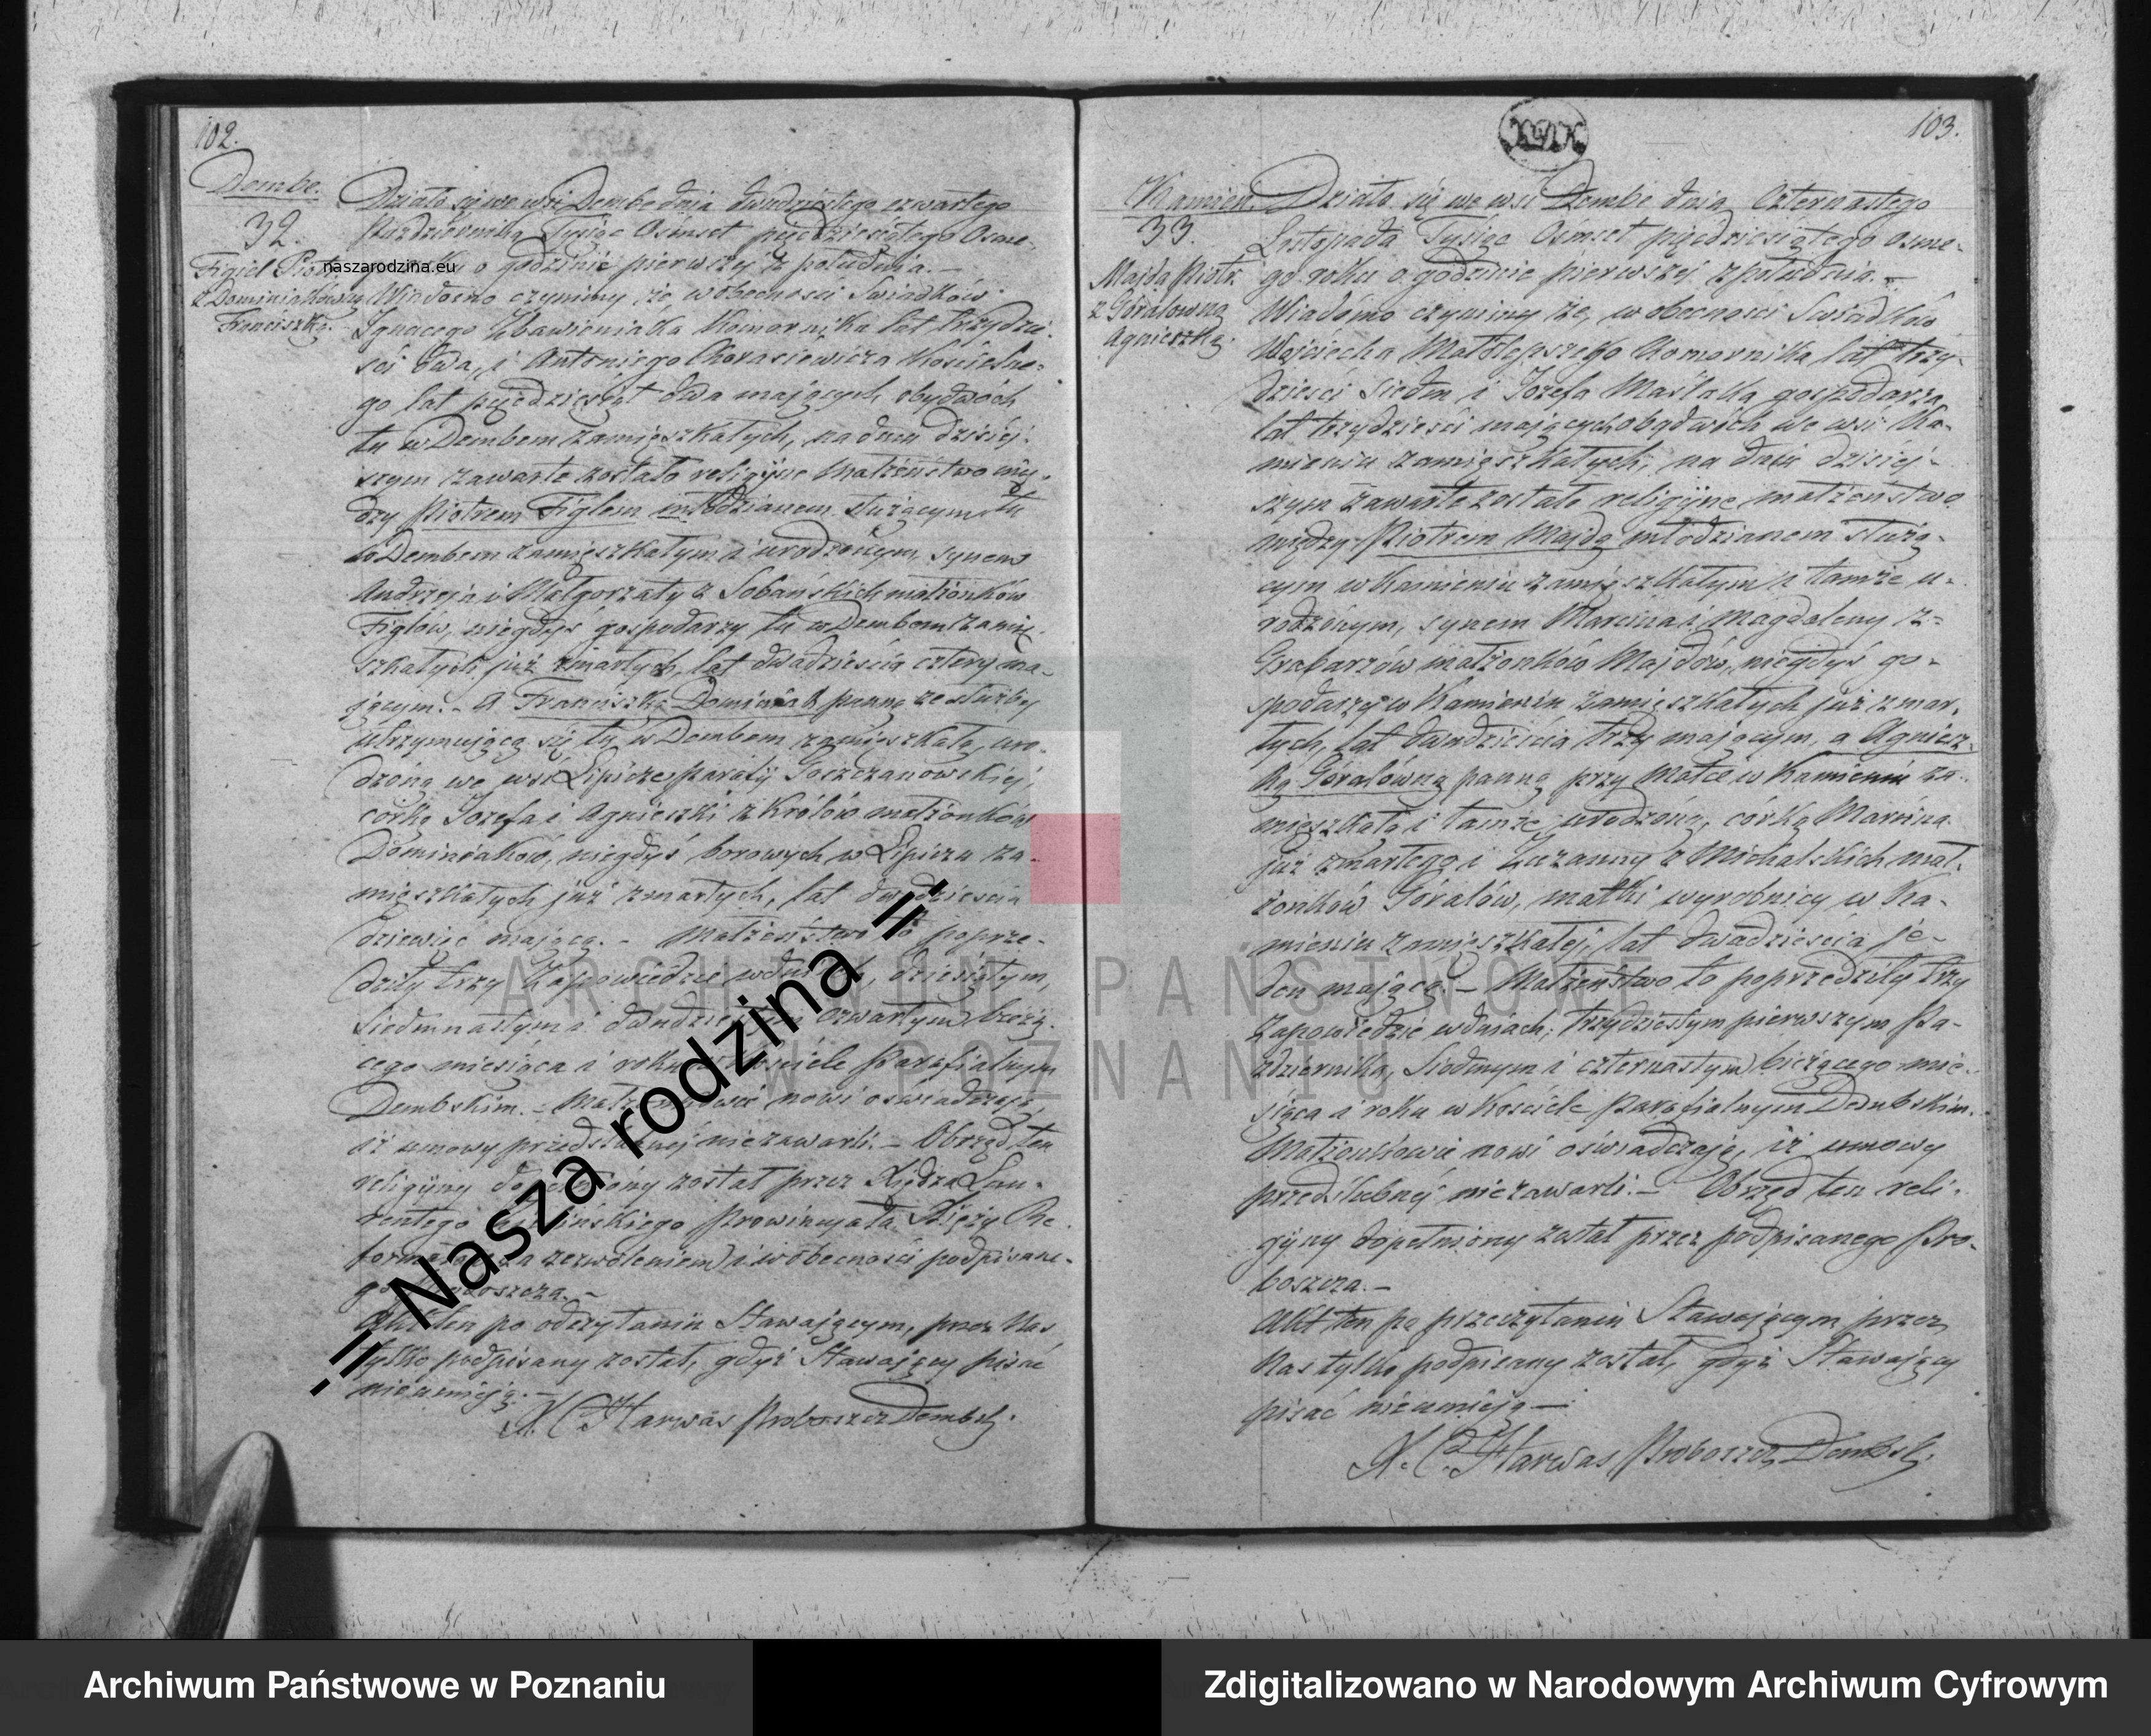 102.
Dembe.
32.
Figiel Piotr
z Dominiakówną
Franciszką.
naszarodzina.eu
Działo się we wsi Dembe dnia dwudziestego czwartego
Października Tysiąc Ośmset pięćdziesiątego Osme-
roku o godzinie pierwszej z południa. –
Wiadomo czynimy że w obecności Świadków
Ignacego Zbawieniaka Komornika lat trzydzie-
ści dwa, i Antoniego Chorasiewicza Kościelne-
go lat pięćdziesiąt dwa mających obydwóch
tu w Dembem zamięszkałych, na dniu dzisiéj-
szym zawarte zostało religijne Małżeństwo mię-
dzy Piotrem Figlem młodzianem służącym tu
w Dembem zamięszkałym i urodzonym, synem
Andrzeja i Małgorzaty z Sobańskich małżonków
Figlów, niegdyś gospodarzy tu w Dembem zamię-
szkałych już zmarłych, lat dwadzieścia cztery ma-
jącym. – A Franciszką Dominiak panną ze służby
utrzymującą się tu w Dembem zamięszkałą, uro-
dzoną we wsi Lipicze Parafij Goszczanowskiéj,
córką Józefa i Agnieszki z Królów małżonków
Dominiaków, niegdyś borowych w Lipiczu za-
mięszkałych już zmarłych, lat dwadzieścia
dziewięć mającą. – Małżeństwo to poprze-
dziły trzy Zapowiedzie w dniach, dziesiątym,
Siedmnastym i dwudziestym czwartym bieżą-
cego miesiąca i roku w Kościele Parafialnym
Dembskim. – Małżonkowie nowi oświadczają,
iż umowy przedślubnéj niezawarli. – Obrząd ten
religijny dopełniony został przez Księdza Lau-
rentego Prowincyała Xięży Re-
formatów za zezwoleniem i w obecności podpisane-
go Proboszcza. –
Akt ten po odczytaniu Stawającym, przez Nas
tylko podpisany został, gdyż Stawający pisać
nieumieją. –
X. C. Harwas Proboszcz Dembsk.
.:= Nasza rodzina =
103.
Kamień.
33.
Majda Piotr.
z Góralowną
Agnieszką.
Działo się we wsi Dembe dnia Czternastego
Listopada Tysiąc Ośmset pięćdziesiątego osme-
go roku o godzinie pierwszéj z południa. –
Wiadomo czynimy że, w obecności Świadków
Wojciecha Małolepszego Komornika lat trzy-
dzieści siedm i Józefa Maślaka gospodarza
lat trzydzieści mających obydwóch we wsi Ka-
mieniu zamięszkałych, na dniu dzisiéj-
szym zawarte zostało religijne małżeństwo
między Piotrem Majdą młodzianem służą-
cym w Kamieniu zamięszkałym i tamże u-
rodzonym, synem Marcina i Magdaleny z-
Grabarzów małżonków Majdów, niegdyś go-
spodarzy w Kamieniu zamięszkałych już zmar-
łych, lat dwadzieścia trzy mającym, a Agniesz-
ką Góralówną panną przy Matce w Kamieniu za-
mięszkałą i tamże urodzoną, córką Marcina
już zmarłego i Zuzanny z Michalskich mał-
żonków Góralów, matki wyrobnicy w Ka-
mieniu zamięszkałéj, lat dwadzieścia je-
den mającą. – Małżeństwo to poprzedziły trzy
Zapowiedzie w dniach; trzydziestym pierwszym Pa-
ździernika, Siódmym i czternastym bieżącego mie-
siąca i roku w Kościele Parafialnym Dembskim.
Małżonkowie nowi oświadczają, iż umowy
przedślubnéj niezawarli. – Obrzęd ten reli-
gijny dopełniony został przez podpisanego Pro-
boszcza. –
Akt ten po przeczytaniu Stawającym przez
Nas tylko podpisany został, gdyż Stawający
pisać nieumieją –
X. C. Harwas Proboszcz Dembsk.
ARCHIWUM PAŃSTWOWE
W POZNANIU
Archiwum Państwowe w Poznaniu
Zdigitalizowano w Narodowym Archiwum Cyfrowym